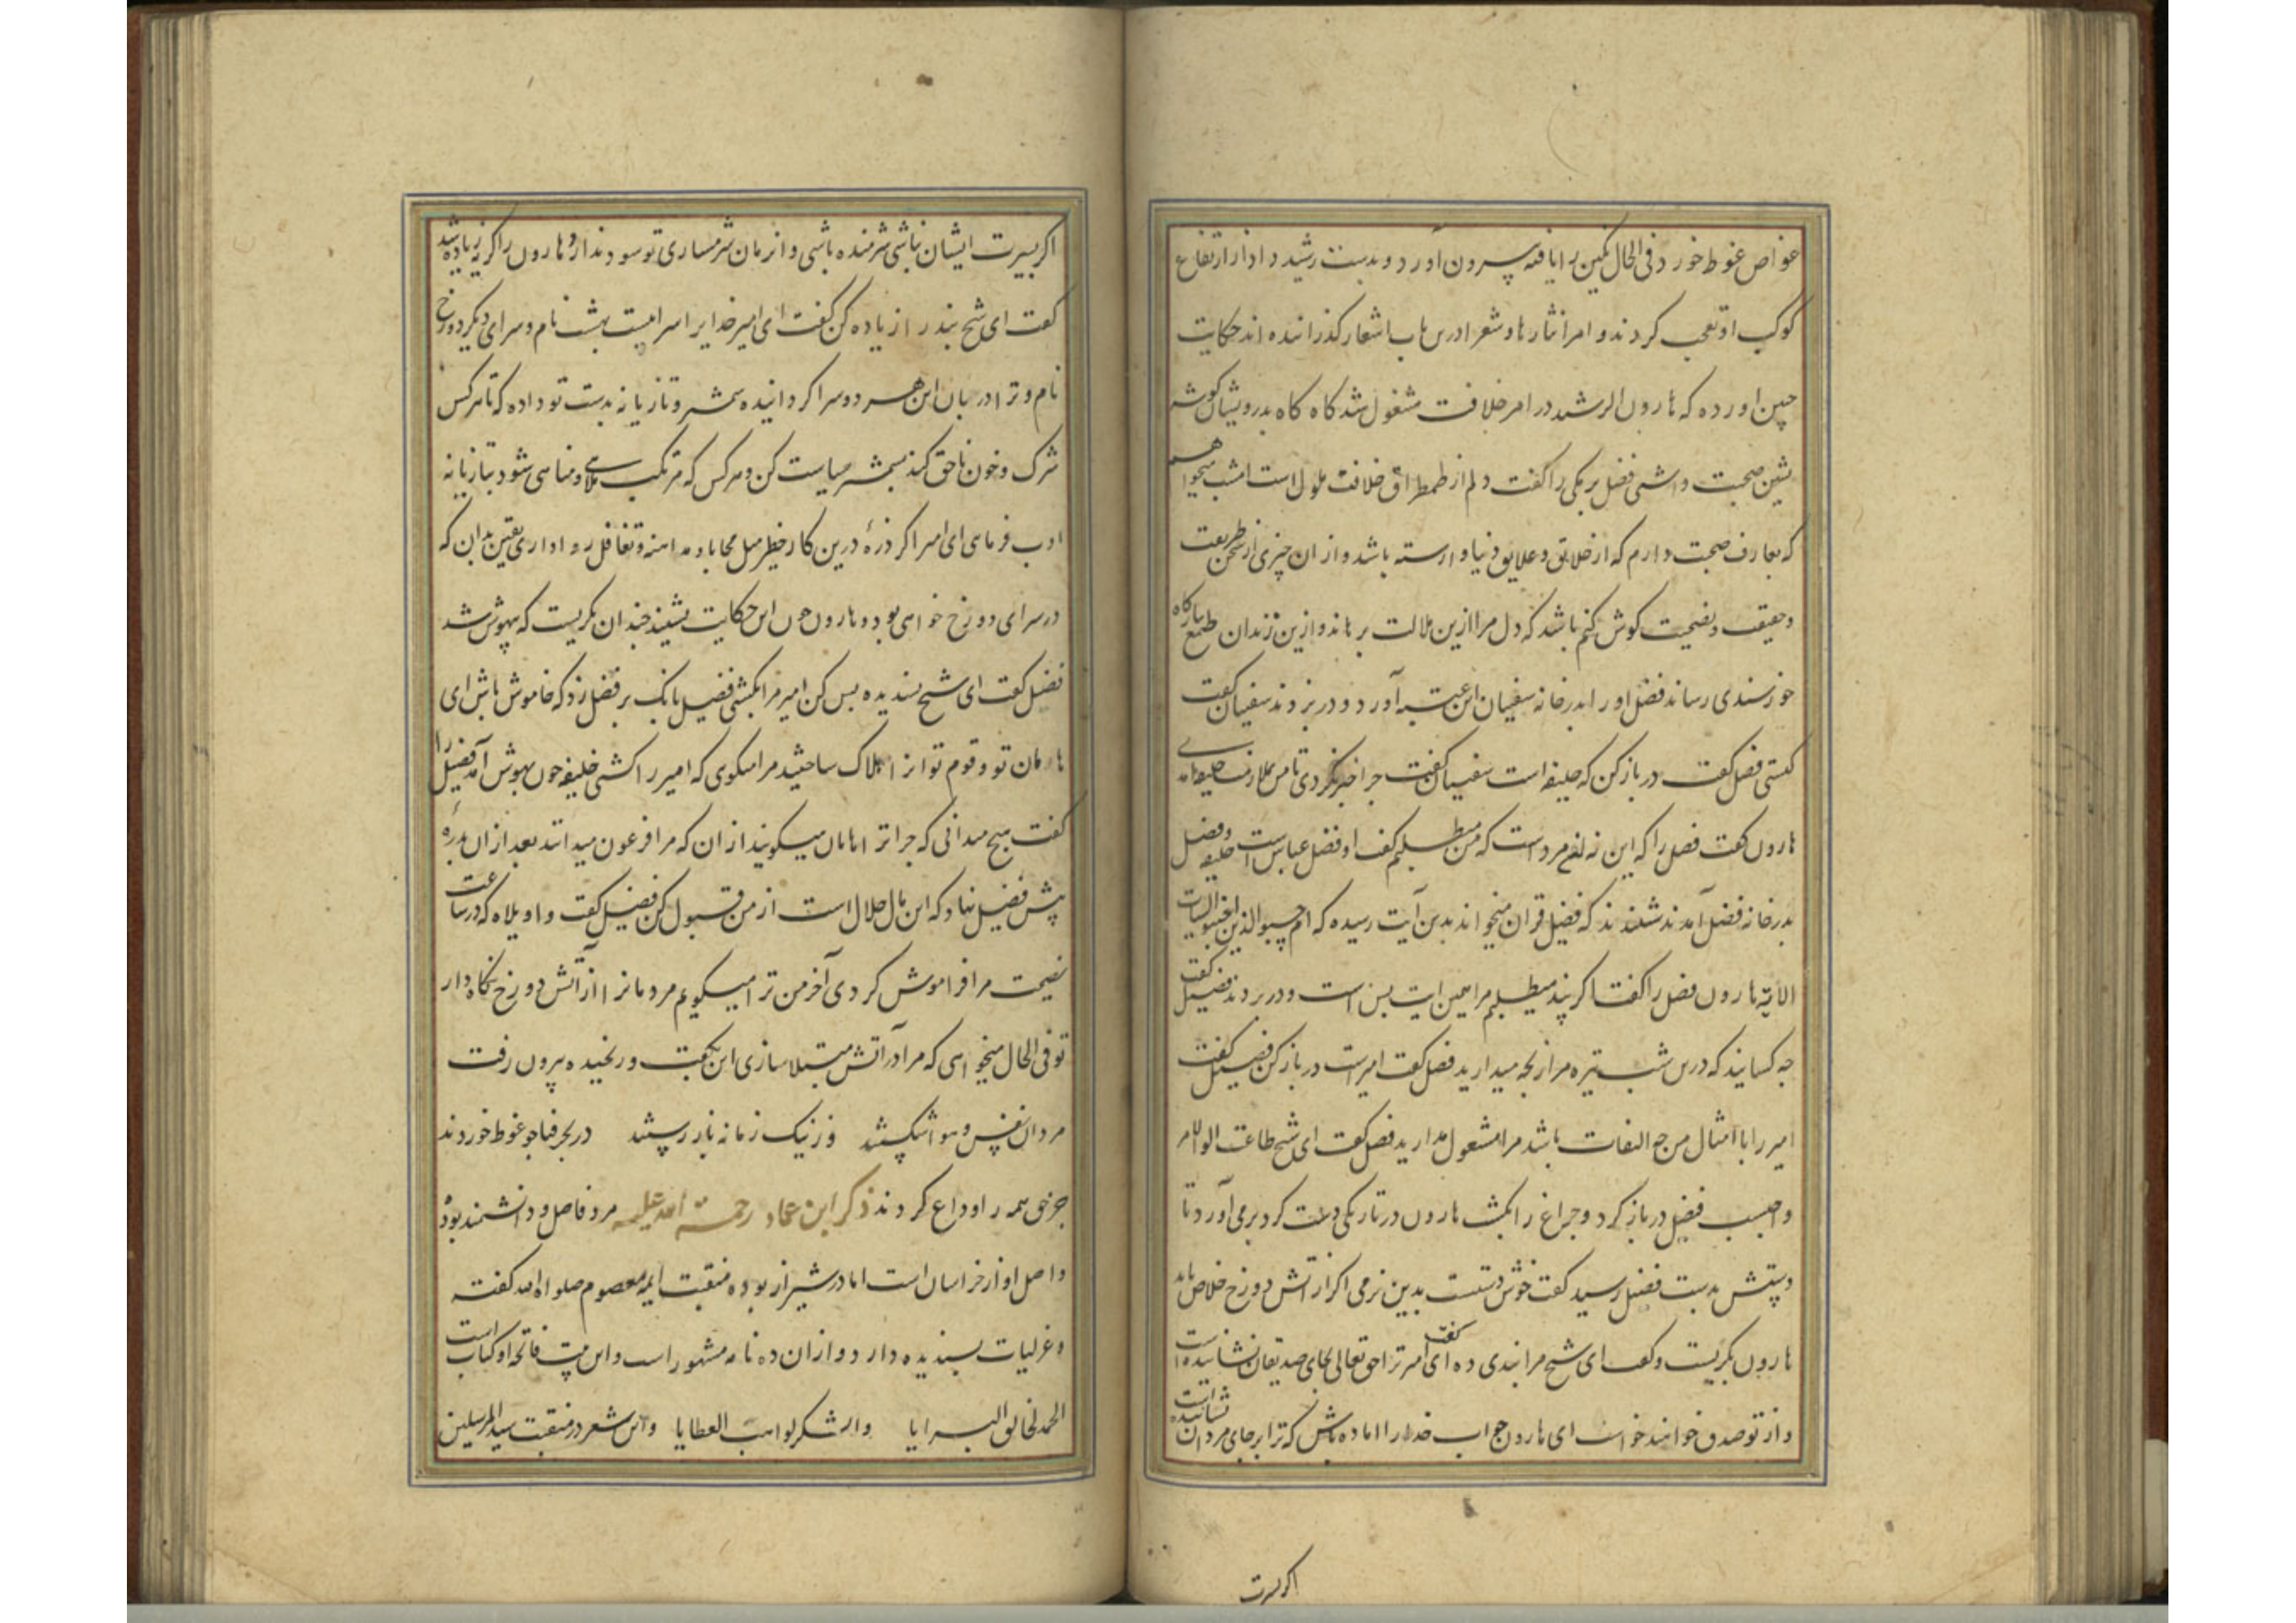 غواص غوط خورد فی الحال نکین را یافته بیرون آورد و بدست رشید داد از ارتفاع
کوکب او تعجب کردند و امرا نثارها و شعرا درین باب اشعار کذرانیده اند حکایت
چنین آورده که هارون الرشید در امر خلافت مشغول شد کاه کاه بدرویشان کوشه
نشین صحبت داشتی فضل برمکی را کفت دلم از طمطراق خلافت ملول است امشب میخواهم
که بعارف صحبت دارم که از خلایق و علایق دنیا وارسته باشد و از ان چیزی از طریقت
و حقیقت و نصیحت کوش کنم باشد که دل مرا ازین ملالت برهاند و ازین زندان طمع ببارکاه
خورسندی رساند فضل او را بدر خانه سفیان ابن عیینه آورد و در بزدند سفیان کفت
کیستی فضل کفت در باز کن که خلیفه است سفیان کفت چرا خبر نکردی تا من بملازمت خلیفه آمدمی
هارون کفت فضل را که این نه انمرد است که من میطلبم کفت او فضیل عیاض است خلیفه و فضل
بدر خانه فضیل آمدند شنیدند که فضیل قران میخواند بدین آیت رسیده که ام حسب الذین اجترحوا السیات
الآیة هارون فضل را کفت اکر پند میطلبم مرا همین ایت بس است و در بزدند فضیل کفت
چه کسانید که درین شب تیره مرا رنجه میدارید فضل کفت امیر است در باز کن فضیل کفت
امیر را با امثال من چه التفات باشد مرا مشغول مدارید فضل کفت ای شیخ طاعت اولوالامر
واجبست فضیل در باز کرد و چراغ را بکشت هارون در تاریکی دست کرد برمی آورد تا
دستش بدست فضیل رسید کفت خوش دستیست بدین نرمی اکر از اتش دوزخ خلاص یابد
هارون بکریست و کفت ای شیخ مرا پندی ده کفت ای امیر ترا حق تعالی بجای صدیقان نشانیده است
و از تو صدق خوانند خواست ای هارون جواب خدایرا اماده باش که ترا بر جای مردان نشانیده است
اکر سیرت
اکر بسیرت ایشان نباشی شرمنده باشی و انزمان شرمساری تو سود ندارد هارون را کریه زیاده شد
کفت ای شیخ پند را زیاده کن کفت ای امیر خدایرا سراییست بهشت نام و سرای دیکر دوزخ
نام و ترا درمیان این هر دو سرا کردانیده شمشیر و تازیانه بدست تو داده که تا هر کس
شرک و خون ناحق کند بشمشیر سیاست کن و هر کس که مرتکب ملاهی و مناهی شود بتازیانه
ادب فرمای ای امیر اکر ذرهٔ درین کار خطیر میل محابا و مداهنه و تغافل روا داری یقین بدان که
در سرای دوزخ خواهی بود و هارون چون این حکایت بشنید چندان بکریست که بیهوش شد
فضل کفت ای شیخ پسندیده بس کن امیر مرا بکشتی فضیل بانک بر فضل زد که خاموش باش ای
هامان تو و قوم تو او را هلاک ساختید مرا میکوی که امیر را کشتی خلیفه چون بهوش آمد فضل را
کفت هیچ میدانی که چرا ترا هامان میکویند از ان که مرا فرعون میداند بعد از ان بدرهٔ
پیش فضیل نهاد که این مال حلال است از من قبول کن فضیل کفت واویلاه که در ساعت
نصیحت مرا فراموش کردی آخر من ترا میکویم مردمانرا از آتش دوزخ نکاه دار
تو فی الحال میخواهی که مرا در آتش مبتلا سازی این بکفت و رنجیده بیرون رفت
مردان نفس و هوا شکستند وز نیک زمانه باز رستند در بحر فنا چو غوط خوردند
چرخی همه را وداع کردند ذکر ابن عماد رحمة الله علیه مرد فاضل و دانشمند بوده
و اصل او از خراسان است اما در شیراز بوده منقبت ایمه معصوم صلوات الله کفته
و غزلیات پسندیده دارد و از ان ده نامه مشهور است و این بیت فاتحه او کتاب است
الحمد لخالق البرایا والشکر لواهب العطایا و این شعر در منقبت سید المرسلین